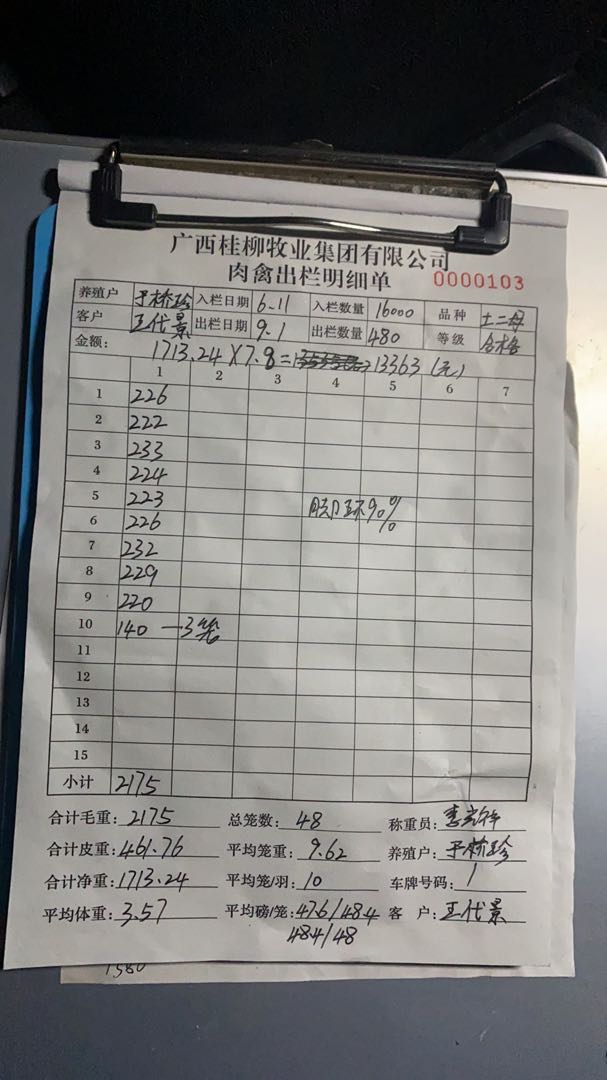 广西桂柳牧业集团有限公司
肉禽出栏明细单 0000103
养殖户 于桥珍 入栏日期 6.11 入栏数量 16000 品种 土二母
客户 王代景 出栏日期 9.1 出栏数量 480 等级 合格
金额: 1713.24×7.8= 13363(元)
1 2 3 4 5 6 7
1 226
2 222
3 233
4 224
5 223 脚环90%
6 226
7 232
8 229
9 220
10 140 —3笼
11
12
13
14
15
小计 2175
合计毛重: 2175 总笼数: 48 称重员:
合计皮重: 461.76 平均笼重: 9.62 养殖户: 于桥珍
合计净重: 1713.24 平均笼/羽: 10 车牌号码: /
平均体重: 3.57 平均磅/笼: 476/484 客 户: 王代景
484/48
1580